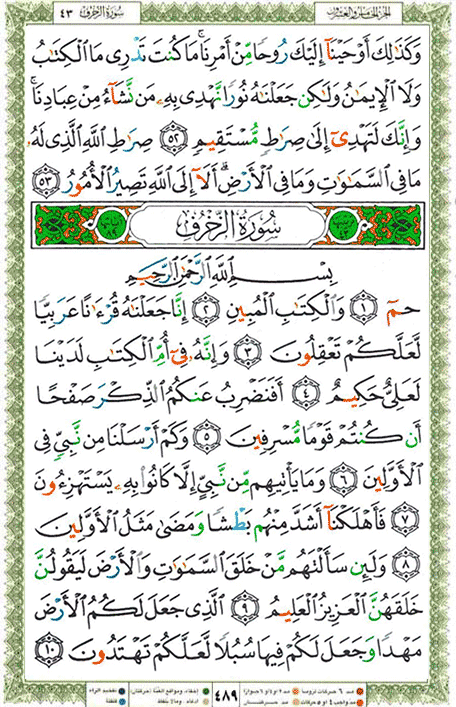 سُورَةُ الزُّخْرُفِ ٤٣ الجزء الخامس والعشرون
وَكَذَٰلِكَ أَوْحَيْنَآ إِلَيْكَ رُوحًا مِّنْ أَمْرِنَا ۚ مَا كُنتَ تَدْرِى مَا ٱلْكِتَٰبُ
وَلَا ٱلْإِيمَٰنُ وَلَٰكِن جَعَلْنَٰهُ نُورًا نَّهْدِى بِهِۦ مَن نَّشَآءُ مِنْ عِبَادِنَا ۚ
وَإِنَّكَ لَتَهْدِىٓ إِلَىٰ صِرَٰطٍ مُّسْتَقِيمٍ ٥٢ صِرَٰطِ ٱللَّهِ ٱلَّذِى لَهُۥ
مَا فِى ٱلسَّمَٰوَٰتِ وَمَا فِى ٱلْأَرْضِ ۗ أَلَآ إِلَى ٱللَّهِ تَصِيرُ ٱلْأُمُورُ ٥٣
سُورَةُ الزُّخْرُفِ
بِسْمِ ٱللَّهِ ٱلرَّحْمَٰنِ ٱلرَّحِيمِ
حمٓ ١ وَٱلْكِتَٰبِ ٱلْمُبِينِ ٢ إِنَّا جَعَلْنَٰهُ قُرْءَٰنًا عَرَبِيًّا
لَّعَلَّكُمْ تَعْقِلُونَ ٣ وَإِنَّهُۥ فِىٓ أُمِّ ٱلْكِتَٰبِ لَدَيْنَا
لَعَلِىٌّ حَكِيمٌ ٤ أَفَنَضْرِبُ عَنكُمُ ٱلذِّكْرَ صَفْحًا
أَن كُنتُمْ قَوْمًا مُّسْرِفِينَ ٥ وَكَمْ أَرْسَلْنَا مِن نَّبِىٍّ فِى
ٱلْأَوَّلِينَ ٦ وَمَا يَأْتِيهِم مِّن نَّبِىٍّ إِلَّا كَانُوا۟ بِهِۦ يَسْتَهْزِءُونَ
٧ فَأَهْلَكْنَآ أَشَدَّ مِنْهُم بَطْشًا وَمَضَىٰ مَثَلُ ٱلْأَوَّلِينَ
٨ وَلَئِن سَأَلْتَهُم مَّنْ خَلَقَ ٱلسَّمَٰوَٰتِ وَٱلْأَرْضَ لَيَقُولُنَّ
خَلَقَهُنَّ ٱلْعَزِيزُ ٱلْعَلِيمُ ٩ ٱلَّذِى جَعَلَ لَكُمُ ٱلْأَرْضَ
مَهْدًا وَجَعَلَ لَكُمْ فِيهَا سُبُلًا لَّعَلَّكُمْ تَهْتَدُونَ ١٠
٤٨٩
مد ٦ حركات لزوماً مد ٢ أو ٤ أو ٦ جوازاً إخفاء، ومواقع الغنة (حركتان) تفخيم الراء
مد واجب ٤ أو ٥ حركات مد حركتان إدغام، وما لا يلفظ قلقلة